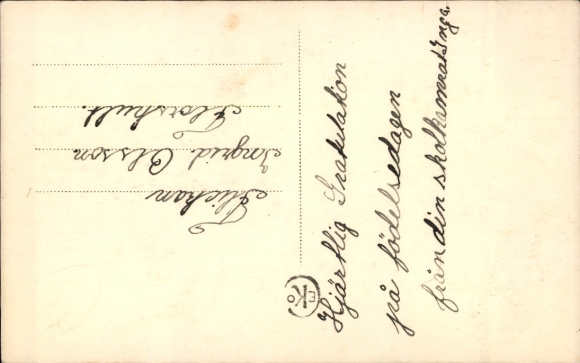 Hjärtlig Gratulation
på födelsedagen
från din skolkamerat Inga.
Flickan
Ingrid Olsson
Florshult.
EKo